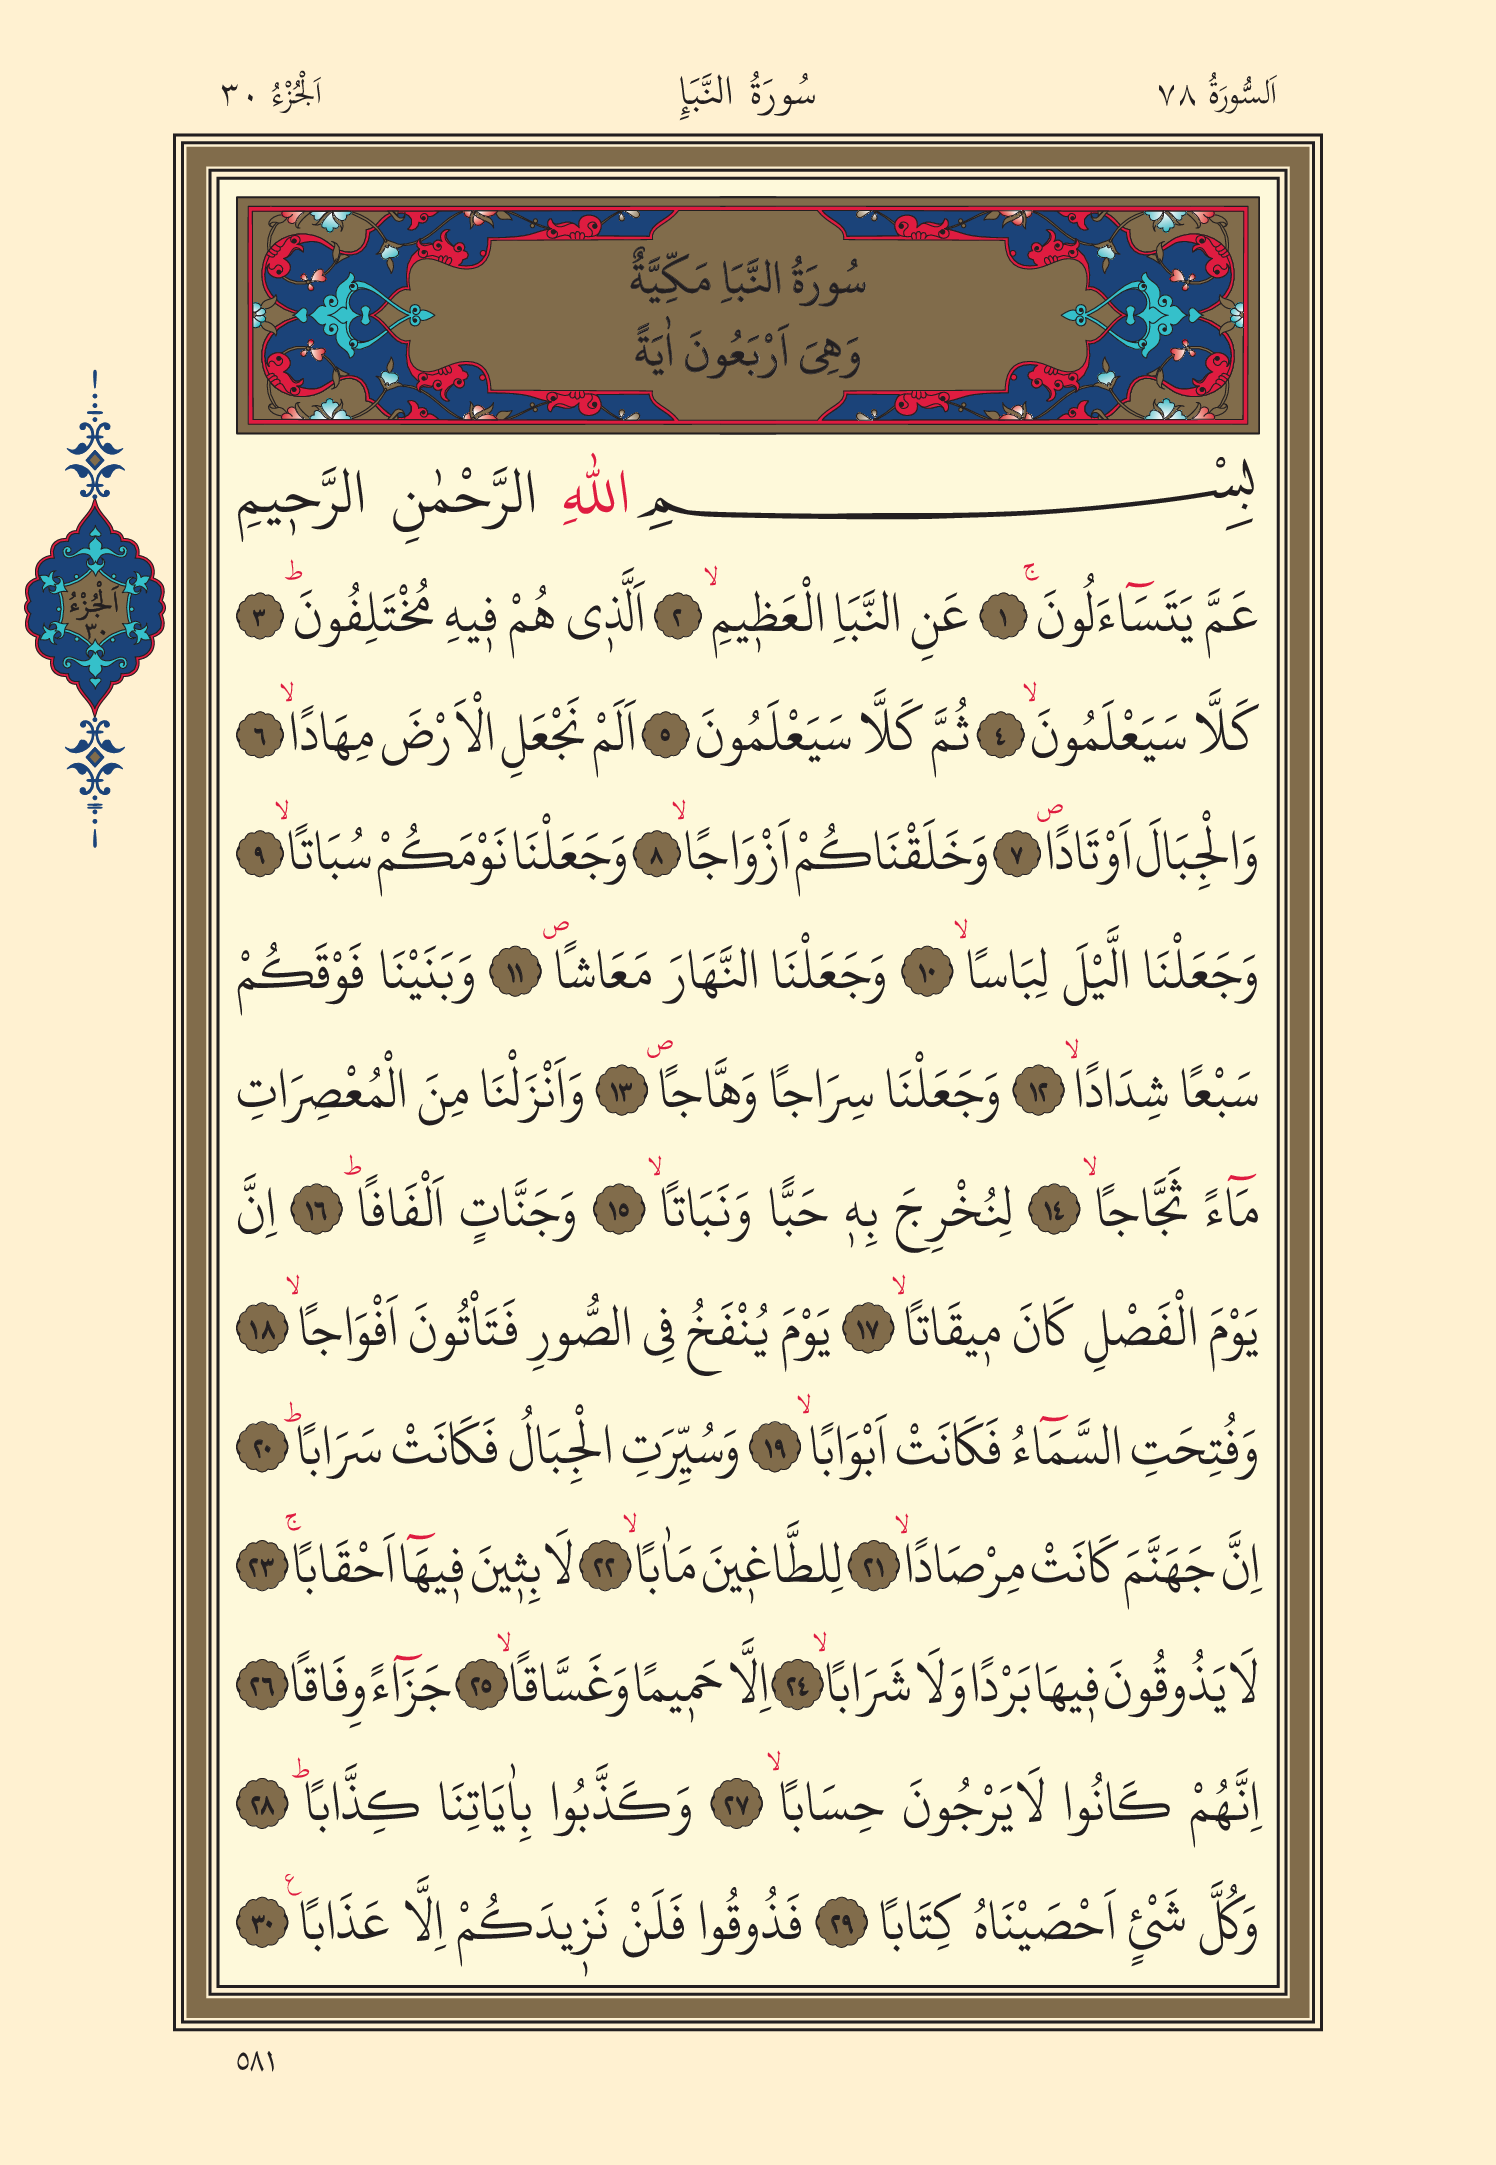 اَلسُّورَةُ ٧٨
سُورَةُ النَّبَإِ
اَلْجُزْءُ ٣٠
سُورَةُ النَّبَاِ مَكِّيَّةٌ
وَهِىَ اَرْبَعُونَ اٰيَةً
اَلْجُزْءُ
٣٠
بِسْمِ اللّٰهِ الرَّحْمٰنِ الرَّح۪يمِ
عَمَّ يَتَسَٓاءَلُونَۚ ﴿١﴾ عَنِ النَّبَاِ الْعَظ۪يمِۙ ﴿٢﴾ اَلَّذ۪ى هُمْ ف۪يهِ مُخْتَلِفُونَۜ ﴿٣﴾
كَلَّا سَيَعْلَمُونَۙ ﴿٤﴾ ثُمَّ كَلَّا سَيَعْلَمُونَ ﴿٥﴾ اَلَمْ نَجْعَلِ الْاَرْضَ مِهَادًاۙ ﴿٦﴾
وَالْجِبَالَ اَوْتَادًاۖ ﴿٧﴾ وَخَلَقْنَاكُمْ اَزْوَاجًاۙ ﴿٨﴾ وَجَعَلْنَا نَوْمَكُمْ سُبَاتًاۙ ﴿٩﴾
وَجَعَلْنَا الَّيْلَ لِبَاسًاۙ ﴿١٠﴾ وَجَعَلْنَا النَّهَارَ مَعَاشًاۖ ﴿١١﴾ وَبَنَيْنَا فَوْقَكُمْ
سَبْعًا شِدَادًاۙ ﴿١٢﴾ وَجَعَلْنَا سِرَاجًا وَهَّاجًاۖ ﴿١٣﴾ وَاَنْزَلْنَا مِنَ الْمُعْصِرَاتِ
مَٓاءً ثَجَّاجًاۙ ﴿١٤﴾ لِنُخْرِجَ بِه۪ حَبًّا وَنَبَاتًاۙ ﴿١٥﴾ وَجَنَّاتٍ اَلْفَافًاۜ ﴿١٦﴾ اِنَّ
يَوْمَ الْفَصْلِ كَانَ م۪يقَاتًاۙ ﴿١٧﴾ يَوْمَ يُنْفَخُ فِى الصُّورِ فَتَاْتُونَ اَفْوَاجًاۙ ﴿١٨﴾
وَفُتِحَتِ السَّمَٓاءُ فَكَانَتْ اَبْوَابًاۙ ﴿١٩﴾ وَسُيِّرَتِ الْجِبَالُ فَكَانَتْ سَرَابًاۜ ﴿٢٠﴾
اِنَّ جَهَنَّمَ كَانَتْ مِرْصَادًاۙ ﴿٢١﴾ لِلطَّاغ۪ينَ مَاٰبًاۙ ﴿٢٢﴾ لَابِث۪ينَ ف۪يهَٓا اَحْقَابًاۚ ﴿٢٣﴾
لَا يَذُوقُونَ ف۪يهَا بَرْدًا وَلَا شَرَابًاۙ ﴿٢٤﴾ اِلَّا حَم۪يمًا وَغَسَّاقًاۙ ﴿٢٥﴾ جَزَٓاءً وِفَاقًا ﴿٢٦﴾
اِنَّهُمْ كَانُوا لَا يَرْجُونَ حِسَابًاۙ ﴿٢٧﴾ وَكَذَّبُوا بِاٰيَاتِنَا كِذَّابًاۜ ﴿٢٨﴾
وَكُلَّ شَىْءٍ اَحْصَيْنَاهُ كِتَابًا ﴿٢٩﴾ فَذُوقُوا فَلَنْ نَز۪يدَكُمْ اِلَّا عَذَابًا ع ﴿٣٠﴾
٥٨١